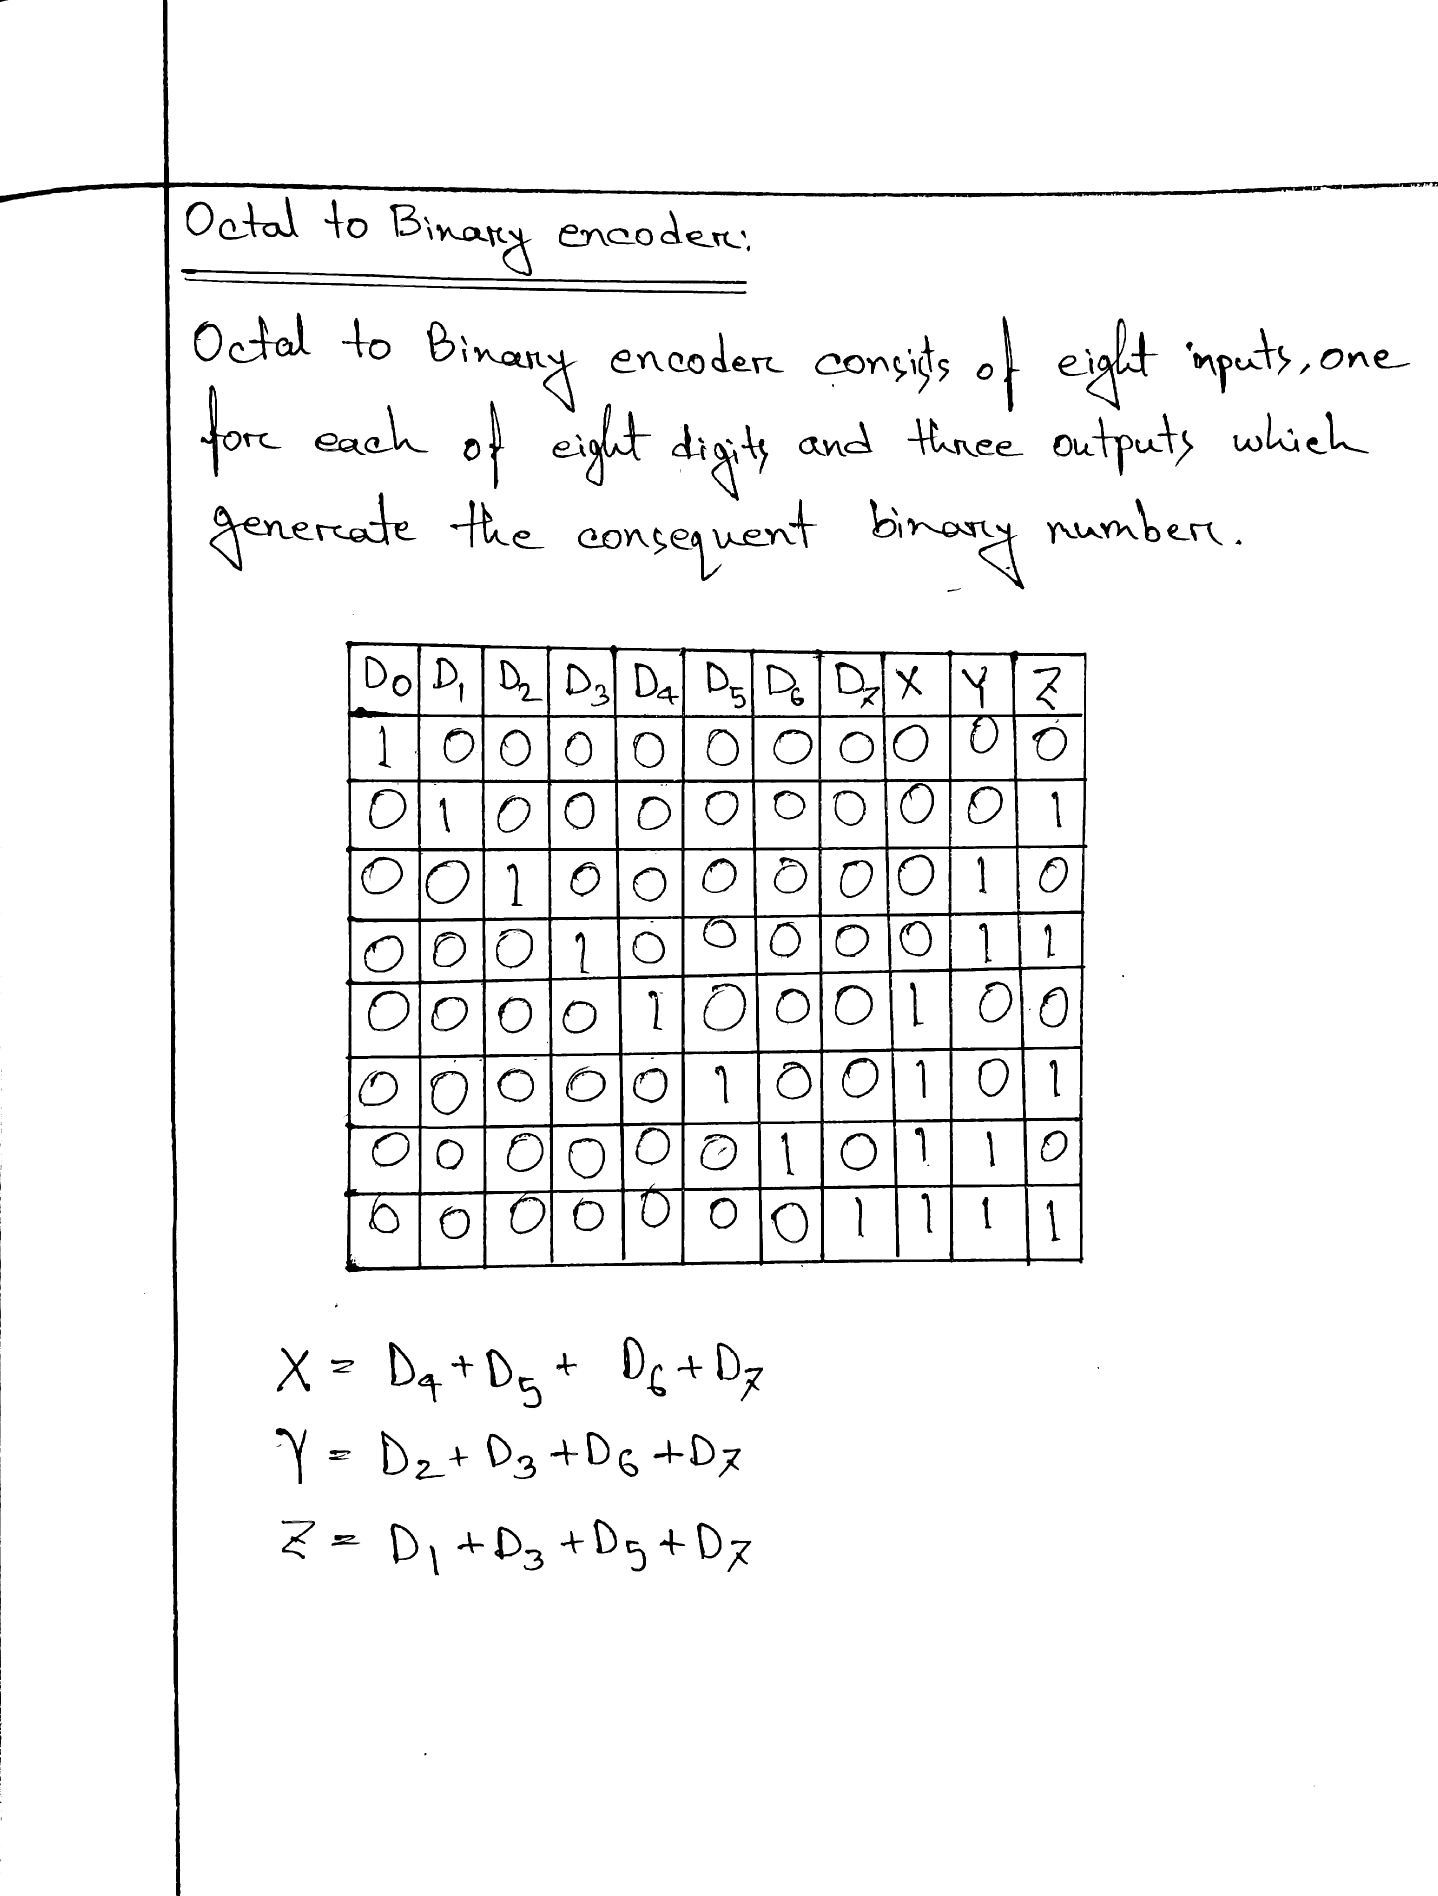 Octal to Binary encoder:
Octal to Binary encoder consists of eight inputs, one
for each of eight digits and three outputs which
generate the consequent binary number.
D0 D1 D2 D3 D4 D5 D6 D7 X Y Z
1 0 0 0 0 0 0 0 0 0 0
0 1 0 0 0 0 0 0 0 0 1
0 0 1 0 0 0 0 0 0 1 0
0 0 0 1 0 0 0 0 0 1 1
0 0 0 0 1 0 0 0 1 0 0
0 0 0 0 0 1 0 0 1 0 1
0 0 0 0 0 0 1 0 1 1 0
0 0 0 0 0 0 0 1 1 1 1
X = D4 + D5 + D6 + D7
Y = D2 + D3 + D6 + D7
Z = D1 + D3 + D5 + D7